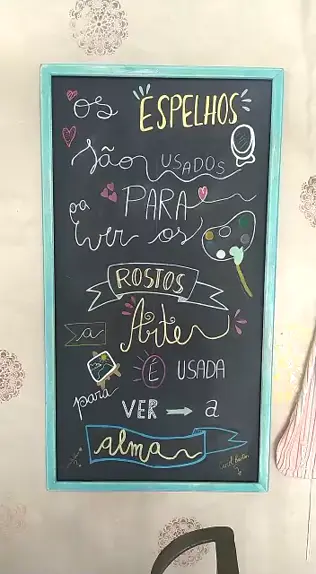 os ESPELHOS
são USADOS
PARA
ver os
ROSTOS
a Arte
É USADA
para VER → a
alma